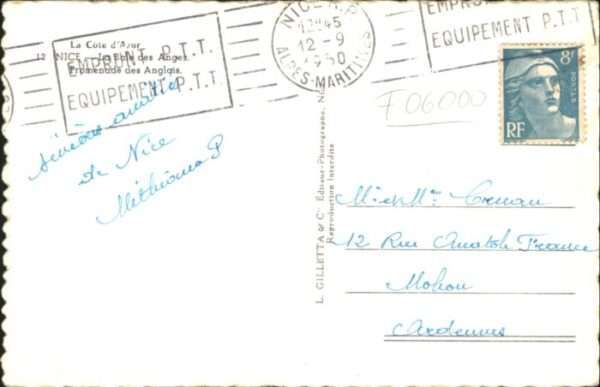 La Côte d'Azur
12 NICE - La Baie des Anges
Promenade des Anglais
EMPRUNT P.T.T.
EQUIPEMENT P.T.T.
NICE R.P.
12H45
12-9
1950
ALPES-MARITIMES
EMPRUNT P.T.T.
EQUIPEMENT P.T.T.
8F
POSTES
RF
F06000
de Nice
L. GILLETTA & Cie Éditeur-Photographe, N
Reproduction Interdite
M et Mme
12 Rue Anatole France
Mohon
Ardennes